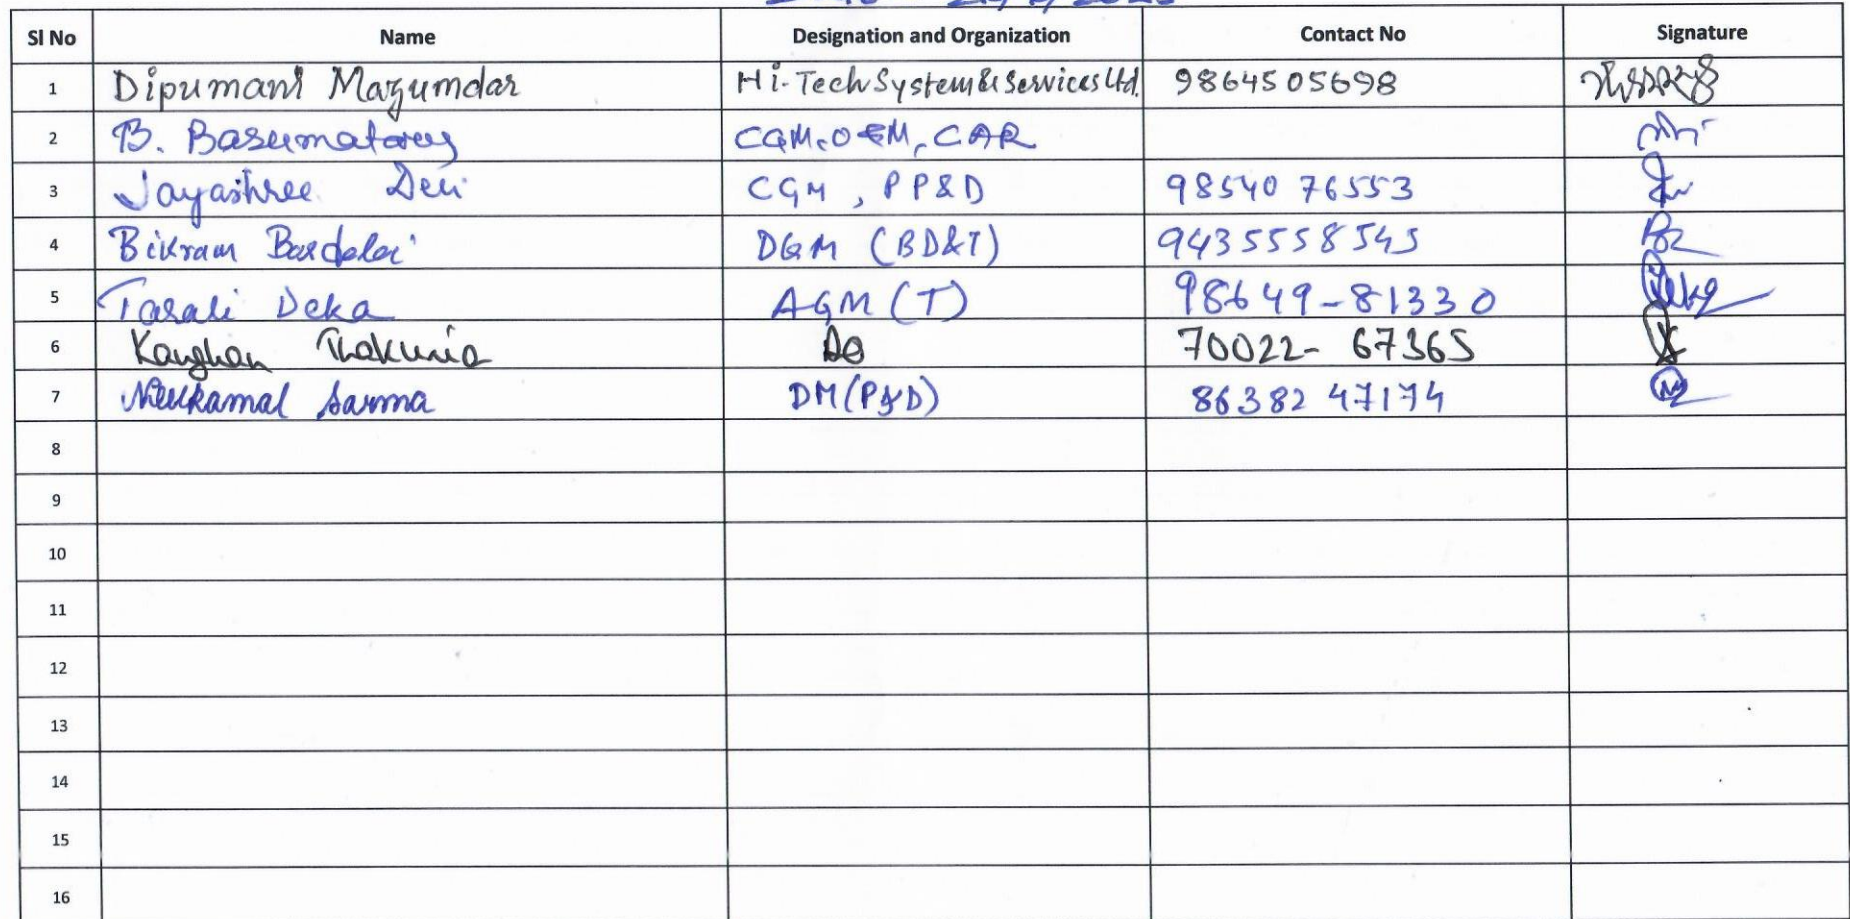 Sl No Name Designation and Organization Contact No Signature
1 Dipumani Mazumdar Hi-Tech System & Services Ltd. 9864505698
2 B. Basumatary CGM, O&M, CAR
3 Jayashree Devi CGM, PP&D 98540 76553
4 Bikram Bardoloi DGM (BD&T) 9435558545
5 Tarali Deka AGM (T) 98649-81330
6 Thakuria 70022- 67365
7 Neelkamal Sarma DM (P&D) 86382 47174
8
9
10
11
12
13
14
15
16